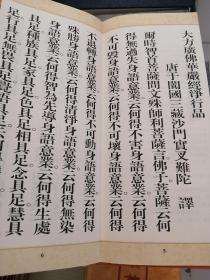 大方廣佛華嚴經淨行品
唐于闐國三藏沙門實叉難陀 譯
爾時智首菩薩問文殊師利菩薩言。佛子。菩薩云何
得無過失身語意業。云何得不害身語意業。云何得
不可毀身語意業。云何得不可壞身語意業。云何得
5
不退轉身語意業。云何得不可動身語意業。云何得
殊勝身語意業。云何得清淨身語意業。云何得無染
身語意業。云何得智為先導身語意業。云何得生處
具足。種族具足。家具足。色具足。相具足。念具足。慧具
足。行具足。無畏具足。覺悟具足
6